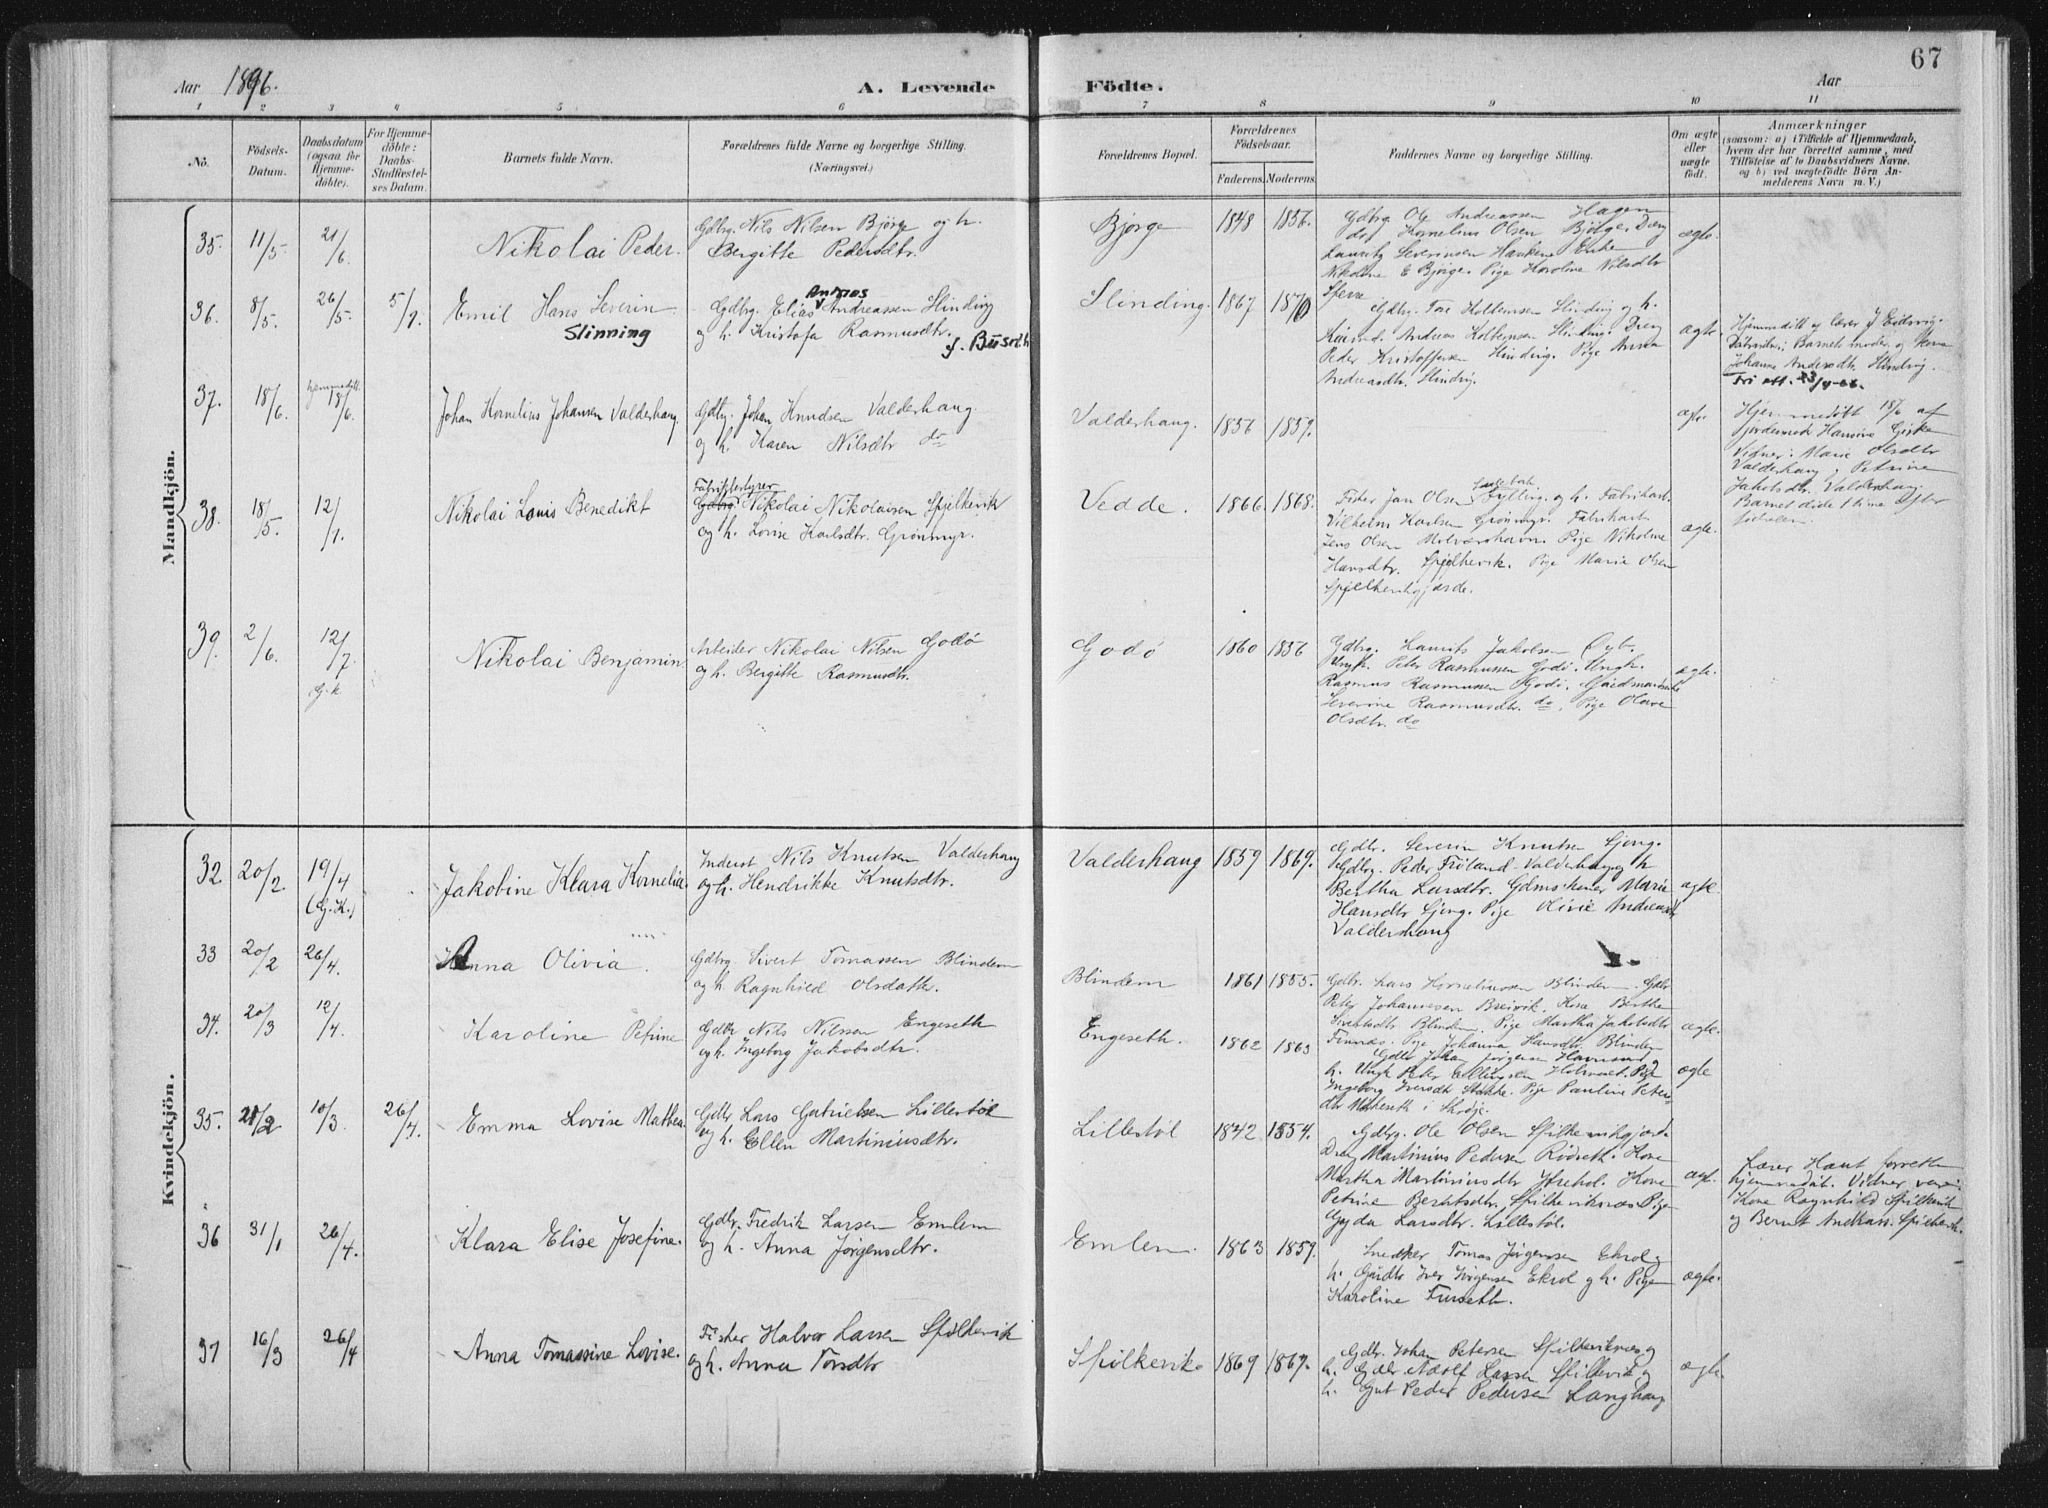 67
Aar 1896.
A. Levende
Födte.
Aar
1 2 3 4 5 6 7 8 9 10 11
No.
Födsels-
Datum.
Daabsdatum
(ogsaa for
Hjemme-
döbte).
For Hjemme-
döbte:
Daabs-
Stadfæstel-
ses Datum.
Barnets fulde Navn.
Forældrenes fulde Navne og borgerlige Stilling.
(Næringsvei.)
Forældrenes Bopæl.
Forældrenes
Födselsaar.
Faderens. Moderens.
Faddernes Navne og borgerlige Stilling.
Om ægte
eller
uægte
født.
Anmærkninger
(saasom: a) i Tilfælde af Hjemmedaab,
hvem der har forrettet samme, med
Tilföielse af to Daabsvidners Navne.
og b) ved uægtefödte Börn An-
melderens Navn m. V.)
Mandkjön.
35. 11/5 21/6 Nikolai Peder.
Gdbrg. Nils Nilsen Bjørge og h.
Bergitte Pedersdtr.
Bjørge 1848 1856.
Gdbrg. Ole Andreassen Hagen
do Kornelius Olsen Bjørge, Dreng
Laurits Severinsen Enke
Nikoline E Bjørge. Pige Karoline Nilsdtr
ægte.
36. 8/5. 26/5. 5/7. Emil Hans Severin
Slinning
Andreas
Gdbrg. Elias Andreassen Slinding
og h. Kristofa Rasmusdtr.
Slinding. 1867 1870
Gdbrg. Tore Holtensen Slinding og h.
Andreas Holtensen Slinding. Dreng
Peder Kristoffersen Slinding. Pige Anna
Andreasdtr. Slinding.
ægte.
Hjemmedøbt av lærer J Eidsvig.
Barnets moder og Kone
Johanne Andersdtr. Slinding.
37. 18/6. hjemmedøbt. 18/6. Johan Kornelius Johansen Valderhaug.
Gdbrg. Johan Knudsen Valderhaug.
og h. Karen Nilsdtr do
Valderhaug. 1856 1859.
ægte.
Hjemmedøbt 18/6 af
Jordemoder Hansine Giske
Vidner: Marie Olsdtr
Valderhaug og Petrine
Jakobsdtr. Valderhaug.
Barnet døde 1 time efter
fødselen.
38. 18/5. 12/7. Nikolai Louis Benedikt
Fabrikbestyrer
Gdbrg. Nikolai Nikolaisen Spjelkevik
og h. Lovise Karlsdtr. Grønmyr.
Vedde. 1866. 1868.
Fisker Jan Olsen Fylling og h. Fabrikarb.
Vilhelm Karlsen Grønmyr. Fabrikarb.
Jens Olsen Molværshavn. Pige Nikoline
Hansdtr. Spjelkevik. Pige Marie Olsen
Spjelkevikgjærde.
ægte.
39. 2/6. 12/7. G.K. Nikolai Benjamin
Arbeider Nikolai Nilsen Godø
og h. Bergitte Rasmusdtr.
Godø 1860 1856
Gdbrg. Laurits Jakobsen
Ungk. Peter Rasmussen Godø. Ungk.
Rasmus Rasmussen Godø. Gaardmandskone
Severine Rasmusdtr. do, Pige Olave
Olsdtr. do
ægte.
Kvindekjön.
32 20/2 19/4 (G.K.) Jakobine Klara Kornelia.
Inderst Nils Knutsen Valderhaug
og h. Hendrikke Knutsdtr.
Valderhaug 1859 1869.
Gdbr. Severin Knutsen Gjøng.
Gdbrg. Peder Frøland Valderhaug og h
Bertha Larsdtr. Gdmskone Marie
Hansdtr Gjøng. Pige Olivie Andreasdtr
Valderhaug
ægte.
33 20/2 26/4. Anna Olivia.
Gdbrg Sivert Tomassen Blindem
og h. Ragnhild Olsdattr.
Blindem 1861 1855.
Gdbr. Lars Kornelinssen Blindem. Gdbr
Peter Johannesen Breivik. Kone Berthe
Sivertsdtr Blindem. Pige Martha Jakobsdtr
Finnæs. Pige Johanna Hansdtr. Blindem
ægte.
34. 20/3 12/4. Karoline Petrine
Gdbr Nils Nilssen Engeseth
og h. Ingeborg Jakobsdtr.
Engeseth. 1862 1863
Gdbr Johan Jørgensen Havnsund og
h. Ungk Peter Ellingsen Holmeset. Pige
Ingeborg Iversdtr Stokke. Pige Pauline Peters-
dtr i Skodje.
ægte
35. 21/2 10/3. 26/4. Emma Lovise Mathea
Gdbr Lars Gabrielsen Lillestøl
og h. Ellen Martiniusdtr.
Lillestøl 1842 1854.
Gdbrg. Ole Olsen Spilkevikgjerd.
Dreng Martinius Pedersen Rødseth. Kone
Martha Martiniusdtr Kone
Petrine Berntsdtr. Spilkeviknæs Pige
Gyda Larsdtr. Lillestøl.
ægte.
Lærer Haut forrettede
hjemmedåb. Vidner vare:
Kone Ragnhild Spilkevik
og Bernt Andreass. Spilkevik.
36 31/1 26/4. Klara Elise Josefine.
Gdbr. Fredrik Larsen Emlem
og h. Anna Jørgensdtr.
Emlem. 1863 1859.
Snedker Tomas Jørgensen Ekrol og
h. Gårdbr Iver Jørgensen Ekrol og h. Pige
Karoline Furseth.
ægte.
37 16/3 26/4 Anna Tomassine Lovise.
Fisker Halvor Larsen Spilkevik
og h. Anna Torsdtr
Spilkevik. 1869 1867.
Gdbr. Johan Petersen Spilkeviknæs og
h. Gdbr. Adolf Larsen Spilkevik og
h. Gut Peder Pedersen Langhaug
ægte.